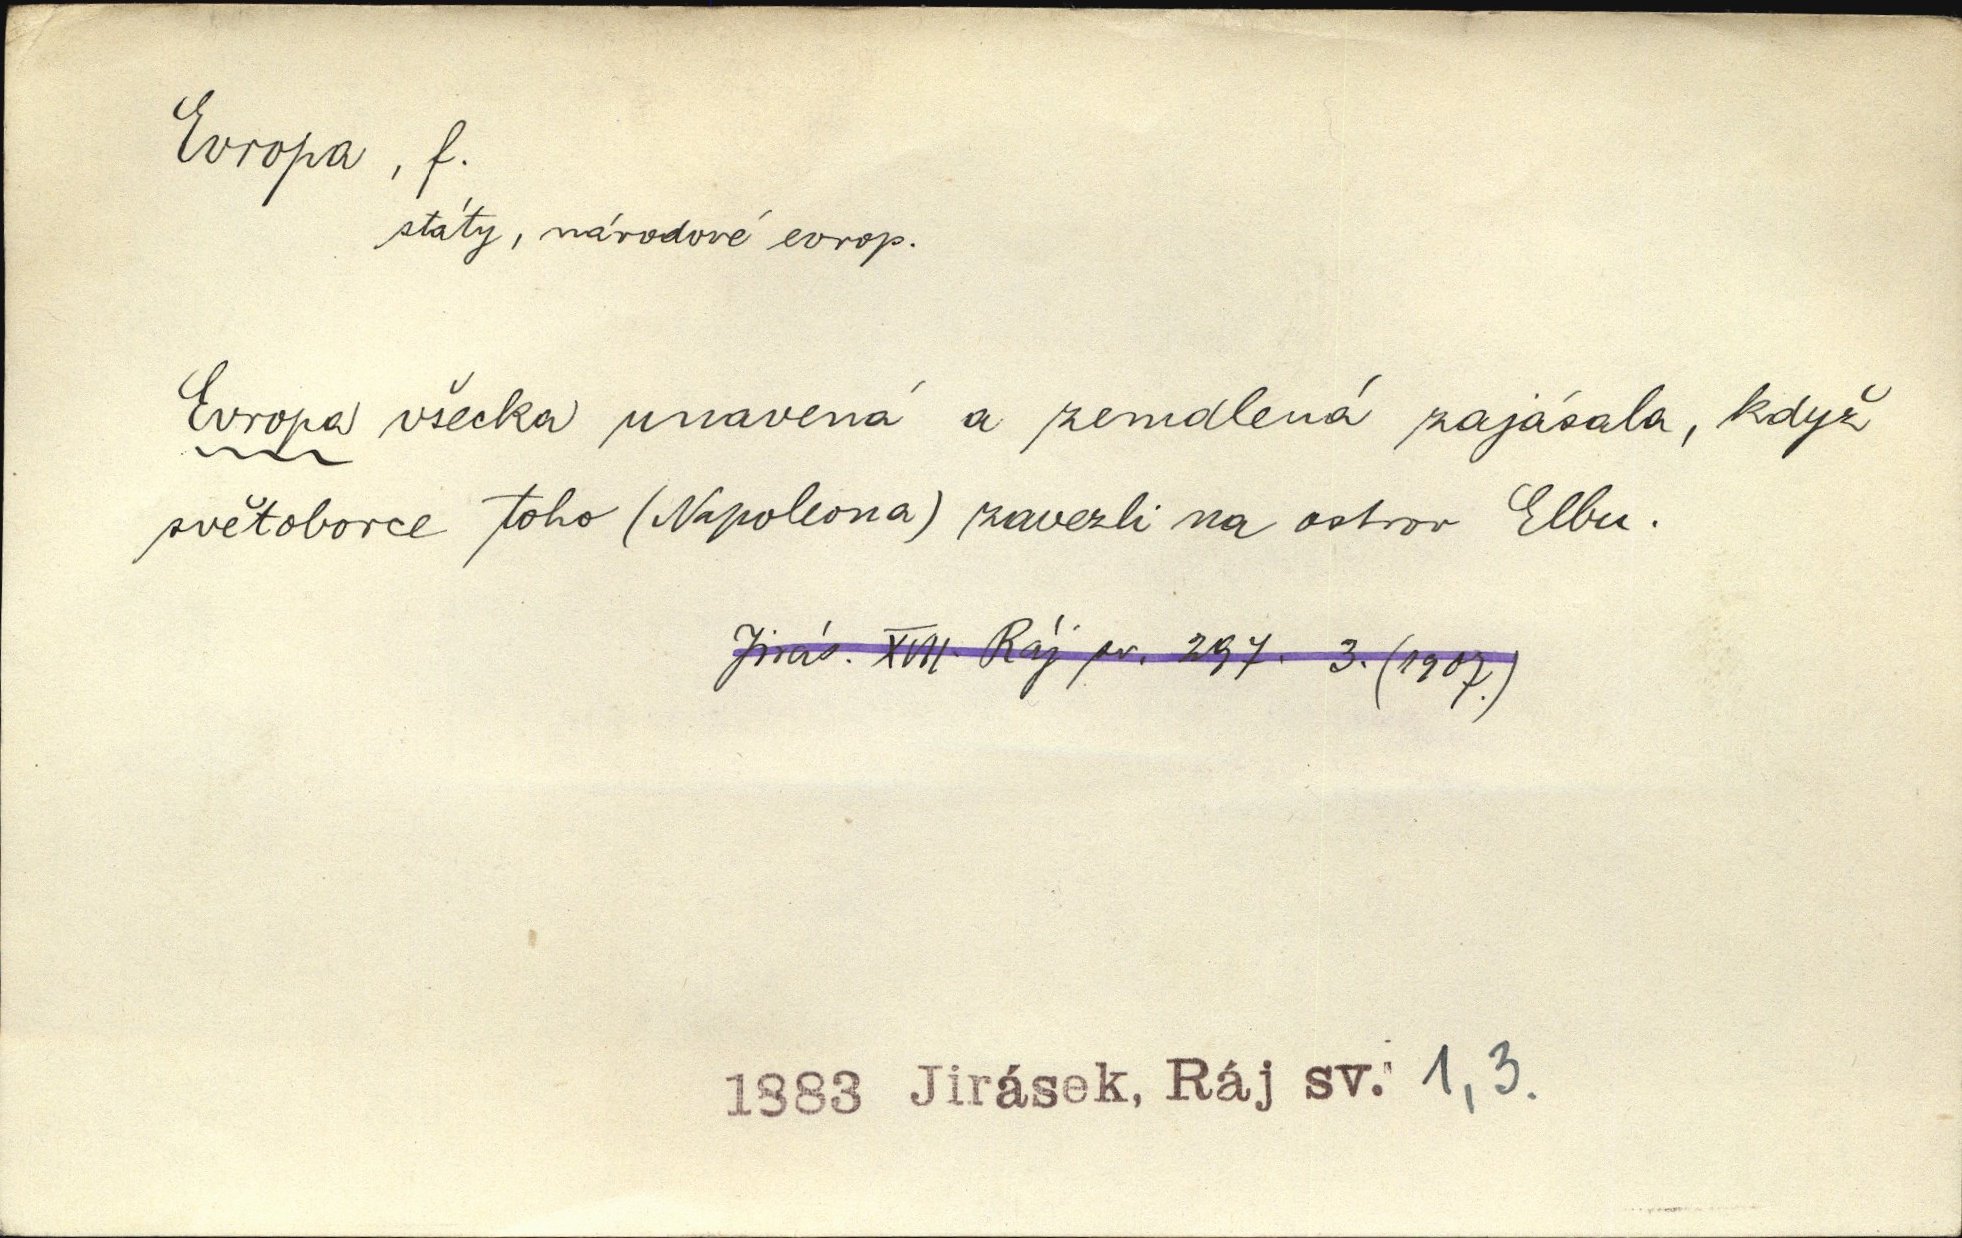 Evropa, f.
státy, národové evrop.
Evropa všecka unavená a zemdlená zajásala, když
světoborce toho (Napoleona) zavezli na ostrov Elbu.
Jirás. XVII. Ráj sv. 297. 3. (1907.)
1883 Jirásek, Ráj sv. 1, 3.